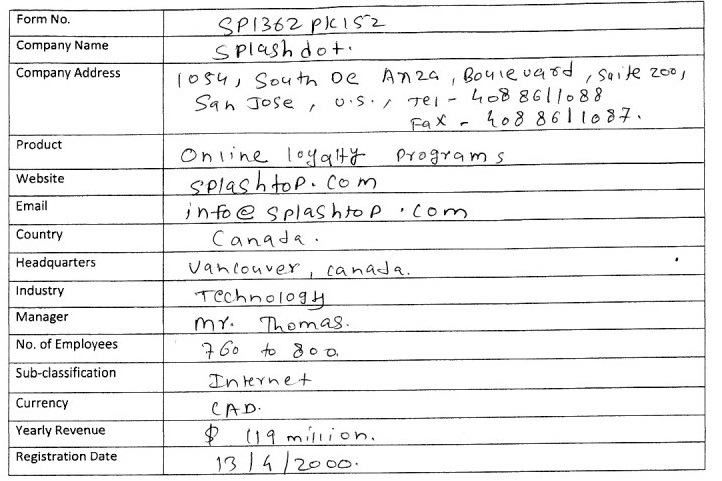 Form No. SP1362PK152
Company Name Splashdot.
Company Address 1054, South De Anza, Boulevard, Suite 200,
San Jose, U.S., Tel - 408 8611088
Fax - 408 8611087.
Product Online loyalty programs
Website splashtop.com
Email info@splashtop.com
Country Canada.
Headquarters Vancouver, Canada.
Industry Technology
Manager Mr. Thomas.
No. of Employees 760 to 800.
Sub-classification Internet
Currency CAD.
Yearly Revenue $ 119 million.
Registration Date 13/4/2000.